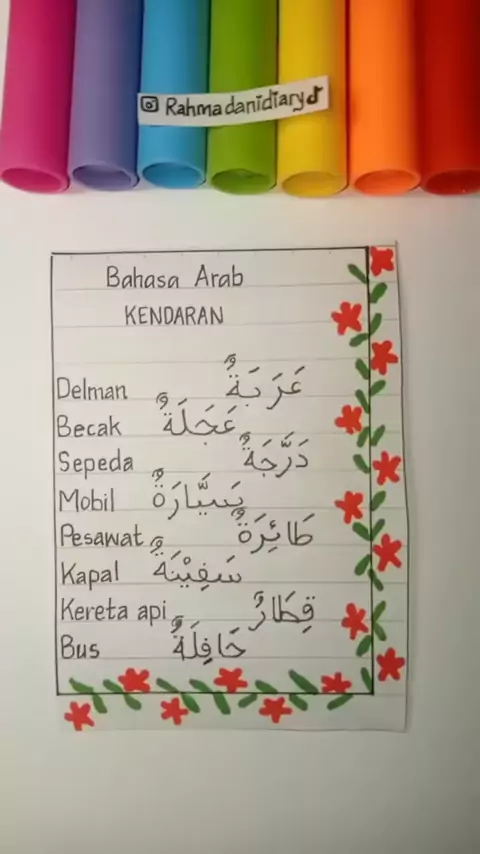 Rahmadanidiary
Bahasa Arab
KENDARAN
Delman عَرَبَةٌ
Becak عَجَلَةٌ
Sepeda دَرَّجَةٌ
Mobil سَيَّارَةٌ
Pesawat طَائِرَةٌ
Kapal سَفِيْنَةٌ
Kereta api قِطَارٌ
Bus حَافِلَةٌ